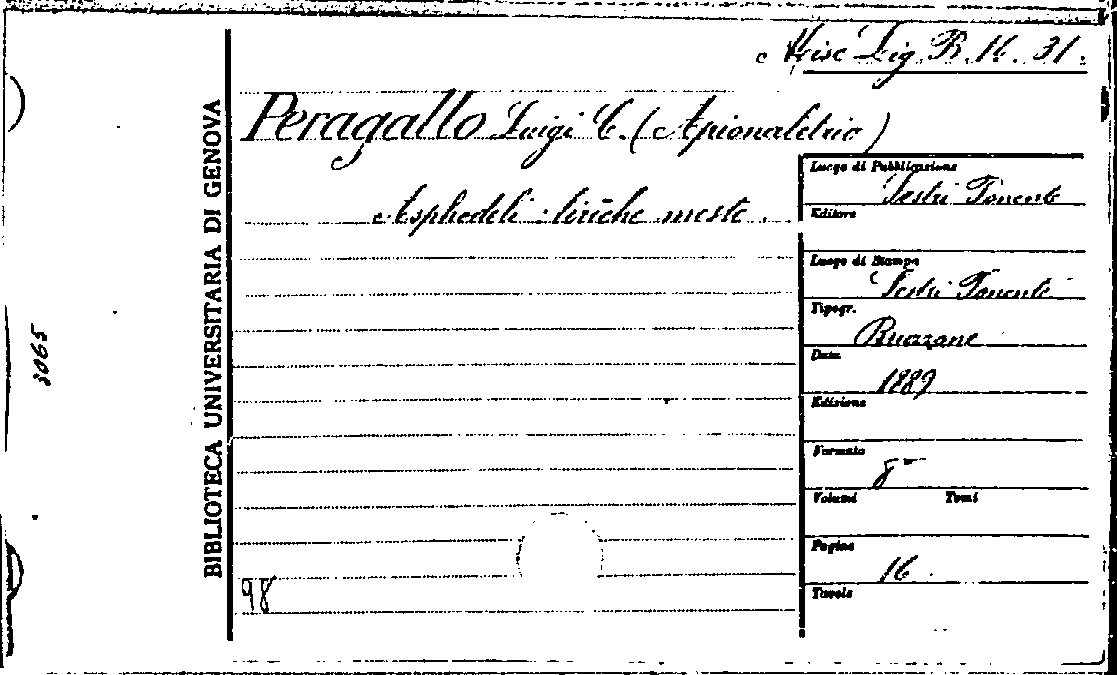 Misc Lig. B. 16. 31.
Peragallo Luigi C. (Apionaletrio)
Asphodeli : liriche meste.
Luogo di Pubblicazione
Sestri Ponente
Editore
Luogo di Stampa
Sestri Ponente
Tipogr.
Bruzzone
Data
1889
Edizione
Formato
8°
Volumi Tomi
Pagine
16
Tavole
98
BIBLIOTECA UNIVERSITARIA DI GENOVA
3065